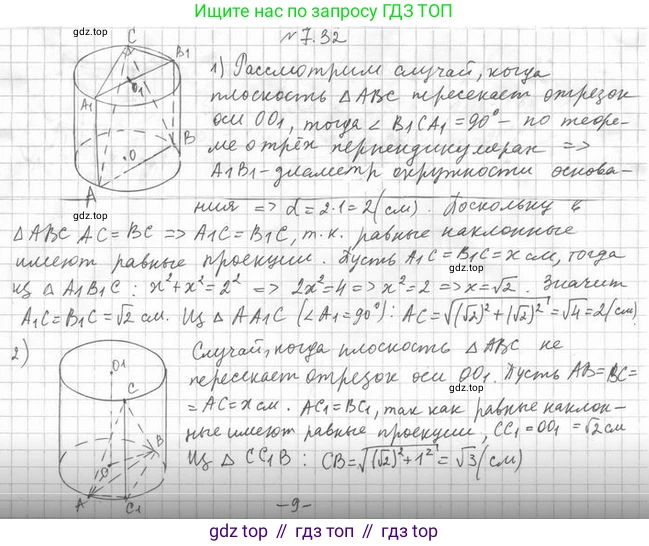 Ищите нас по запросу ГДЗ ТОП
gdz.top
№7.32
C
B1
O1
A1
O
B
A
1) Рассмотрим случай, когда
плоскость △ABC пересекает отрезок
оси OO1, тогда ∠ B1CA1 = 90° - по теоре-
ме о трёх перпендикулярах =>
A1B1 - диаметр окружности основа-
ния => d = 2·1 = 2 (см). Поскольку в
△ABC AC = BC => A1C = B1C, т.к. равные наклонные
имеют равные проекции. Пусть A1C = B1C = x см, тогда
из △ A1B1C : x² + x² = 2² => 2x² = 4 => x² = 2 => x = √2. Значит
A1C = B1C = √2 см. Из △ AA1C (∠A1 = 90°): AC = √((√2)² + (√2)²) = √4 = 2 (см)
2)
O1
C
B
O
A
C1
Случай, когда плоскость △ABC не
пересекает отрезок оси OO1. Пусть AB = BC =
= AC = x см. AC1 = BC1, так как равные наклон-
ные имеют равные проекции, CC1 = OO1 = √2 см
Из △ CC1B : CB = √((√2)² + 1²) = √3 (см)
-9-
gdz.top
gdz.top // гдз.топ // gdz.top // гдз.топ